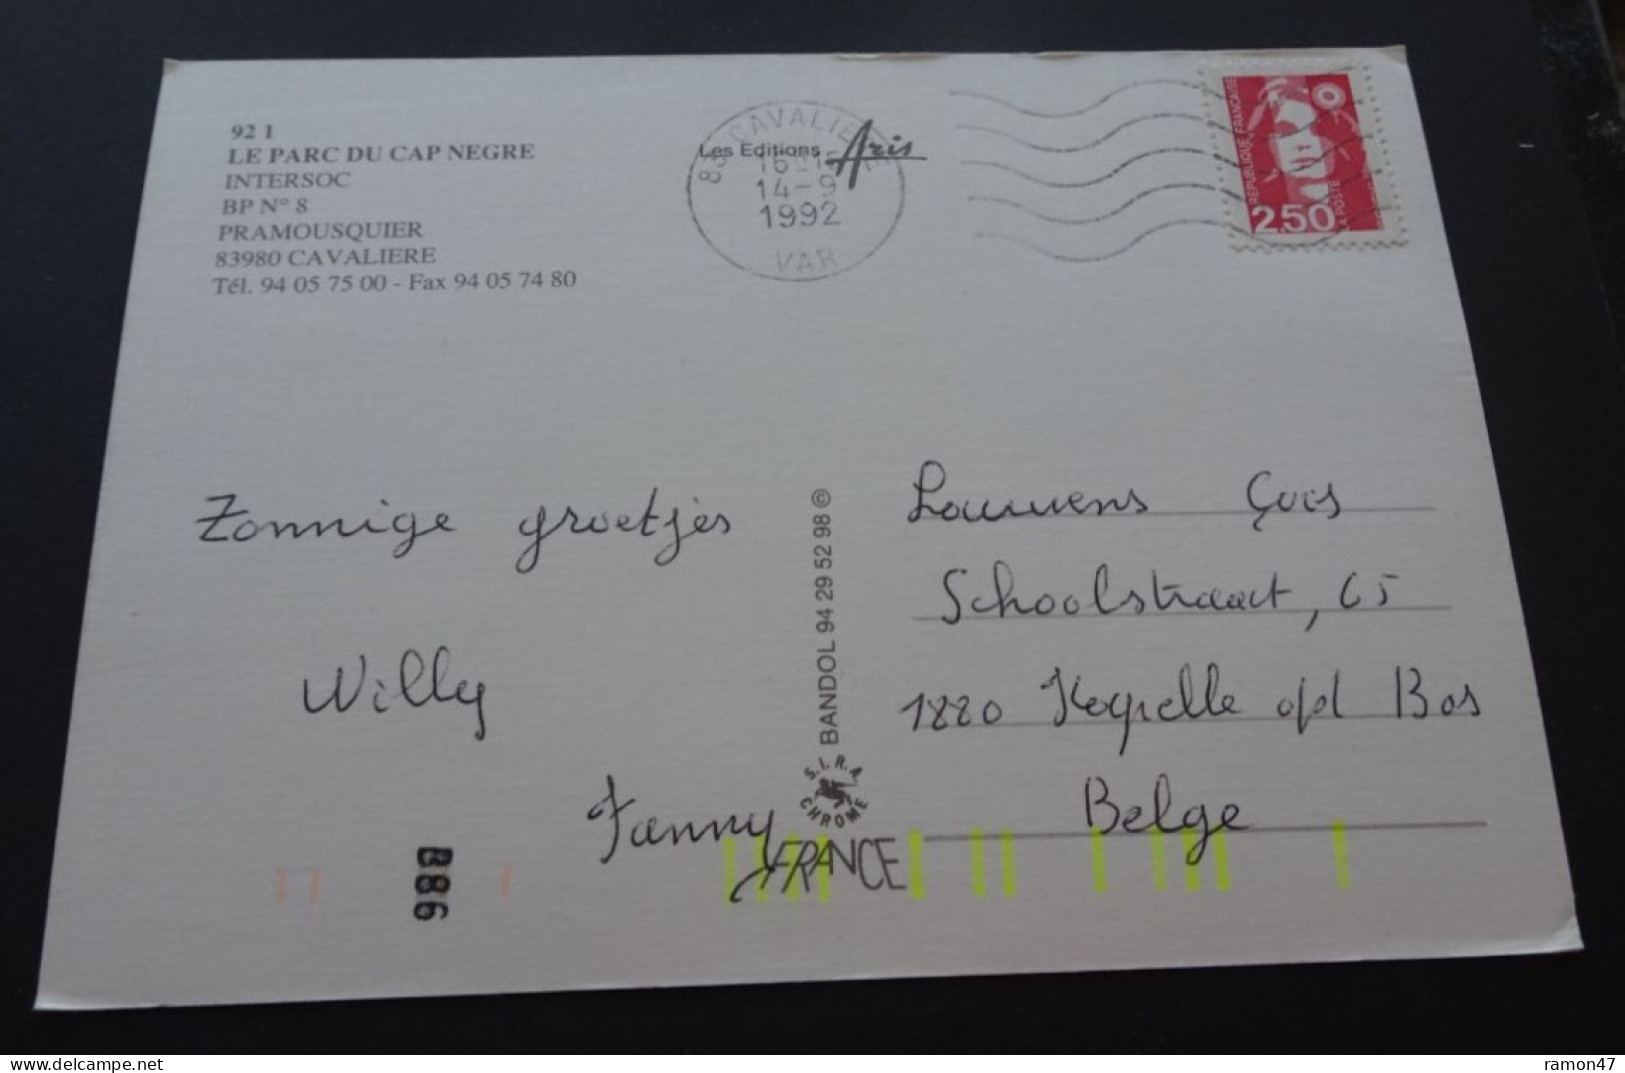 92 I
LE PARC DU CAP NEGRE
INTERSOC
BP N° 8
PRAMOUSQUIER
83980 CAVALIERE
Tél. 94 05 75 00 - Fax 94 05 74 80
Les Editions Aris
83 CAVALIERE
14-9
1992
VAR
REPUBLIQUE FRANÇAISE
2,50
LA POSTE
Zonnige groetjes
Willy
Fanny
BANDOL 94 29 52 98 ©
S.I.R.A.
CHROME
FRANCE
Schoolstraat, 65
1880 Kapelle o/d Bos
Belge
B86
delcampe.net
ramon47